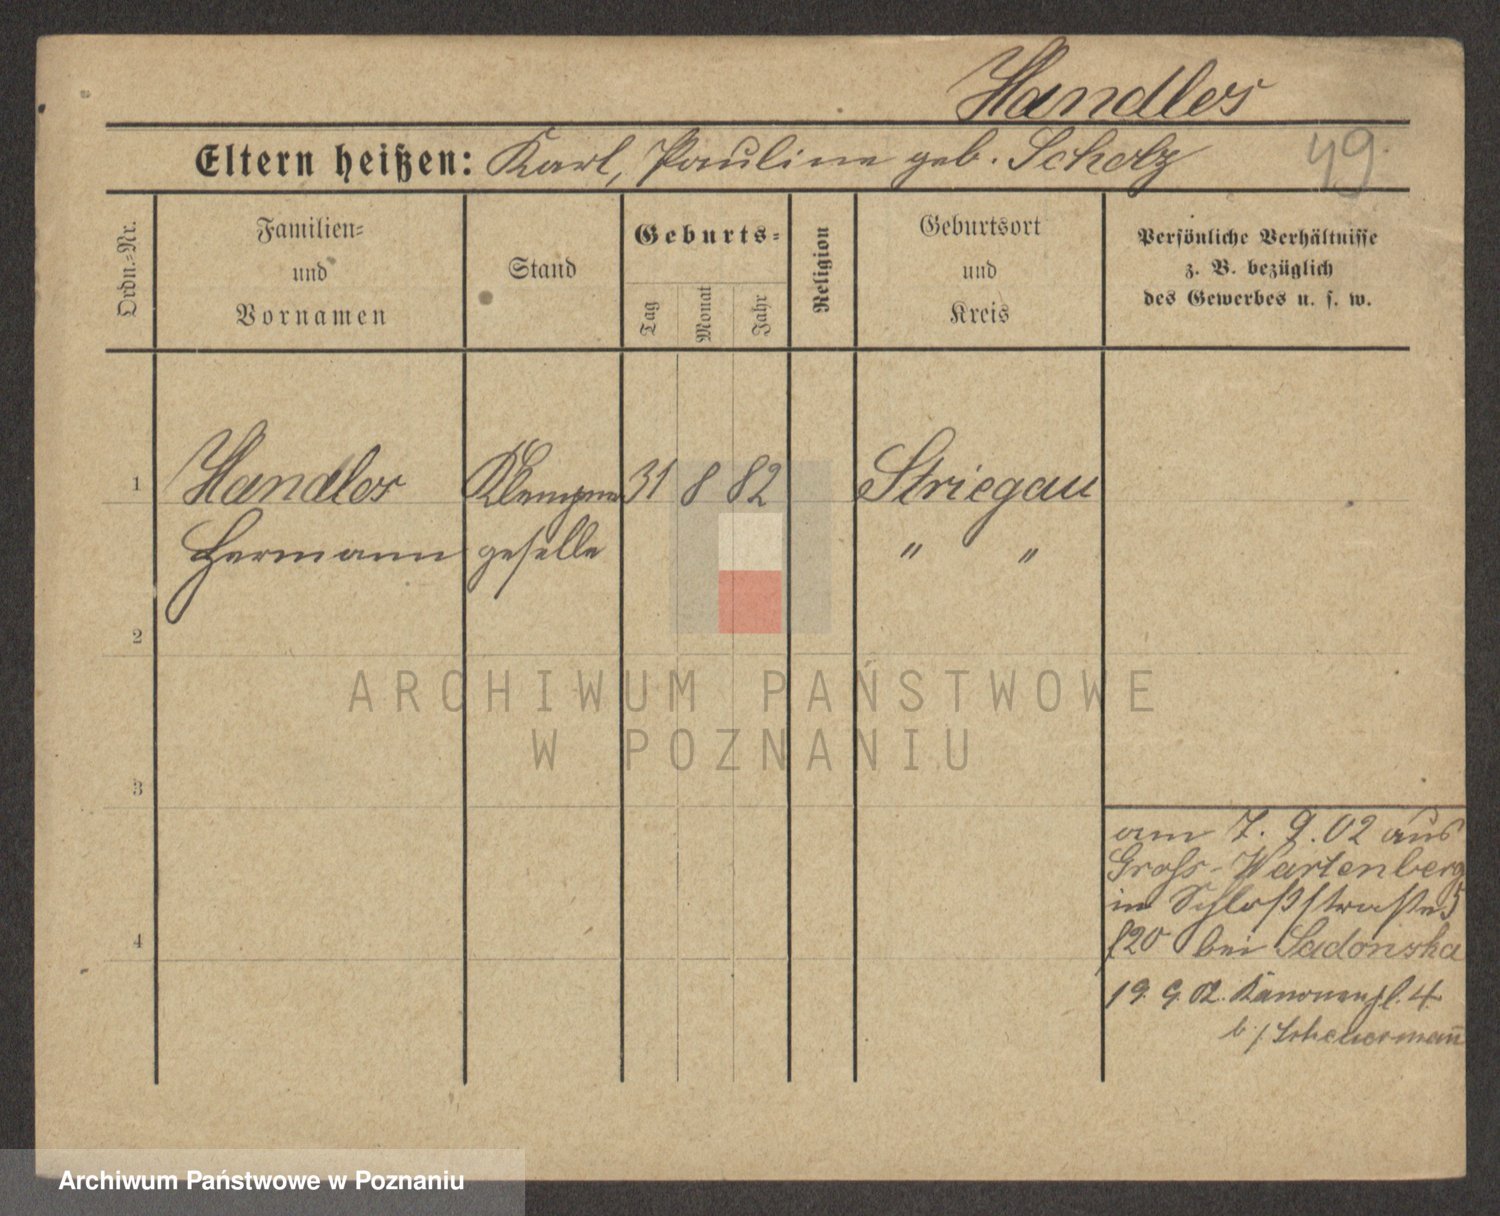 Handlos
49.
Eltern heißen: Karl, Pauline geb. Scholz
Ordn.=Nr.
Familien=
und
Vornamen
Stand
Geburts=
Tag
Monat
Jahr
Religion
Geburtsort
und
Kreis
Persönliche Verhältnisse
z. B. bezüglich
des Gewerbes u. s. w.
1 Handlos Klempner 31 8 82 Striegau
Hermann geselle " "
2
ARCHIWUM PAŃSTWOWE
W POZNANIU
3
am 7. 9. 02 aus
Groß-Wartenberg
in Schloßstraße 5
bei Sadonska
4
19. 9. 02. Kanonenpl. 4
b./ Scheuermann
Archiwum Państwowe w Poznaniu